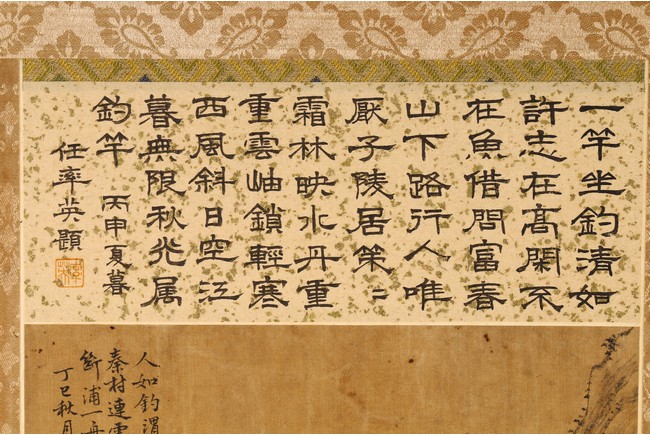 一竿坐釣清如
許志在高閑不
在魚借問富春
山下路行人唯
厭子陵居策〻
霜林映水丹重
重雲岫鎖輕寒
西風斜日空江
暮無限秋光属
釣竿 丙申夏暮
任率英題
人如釣渭
秦村連雲
斷浦一舟
丁巳秋月